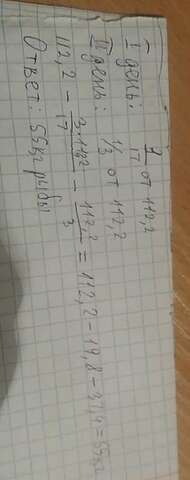 I день:
3/17 от 112,2
II день:
1/3 от 112,2
112,2 - 3·112,2/17 - 112,2/3 = 112,2 - 19,8 - 37,4 = 55кг
Ответ: 55кг рыбы